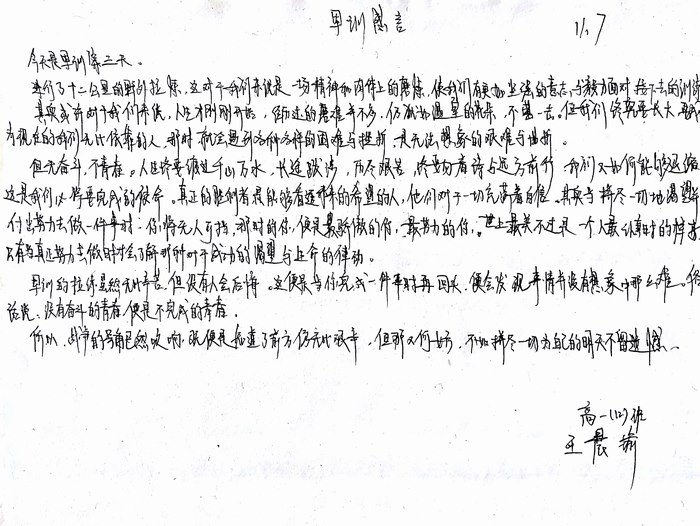 军训感言
11.7
今天是军训第三天。
进行了十二公里的野外拉练,这对于我们来说是一场精神和肉体上的磨炼,使我们有更加坚强的意志与毅力面对接下去的训练
其实或许对于我们来说,人生才刚刚开始,经历过的磨难并不多,仍犹如温室的花朵,不堪一击,但我们终究要长大,要成
为现在的我们无比依靠的人,那时或许会遇到各种各样的困难与挫折,是无法想象的艰难与曲折。
但无奋斗,不青春。人生终要渡过千山万水,长途跋涉,历尽艰苦,终要向着诗与远方前行,我们又如何能够退缩
这是我们必将要完成的使命。真正的胜利者是能够看透
的希望的人,他们对于一切充满着自信。其实当拼尽一切地渴望
付出努力去做一件事时,你将无人可挡,那时的你,便是最骄傲的你,最努力的你,世上最美不过是一个人最认真时的样子
只有当真正努力去做时才会了解那种对于成功的渴望与生命的律动。
军训的拉练虽然无比辛苦,但没有人会后悔。这便是当你完成一件事时再回头,便会发现事情并没有想象中那么难。俗
话说,没有奋斗的青春,便是不完成的青春。
所以,战争的号角已然吹响,既便是知道了前方仍无比艰辛,但那又何妨,不如拼尽一切为自己的明天不留遗憾
高一(12)班
王晨瑜